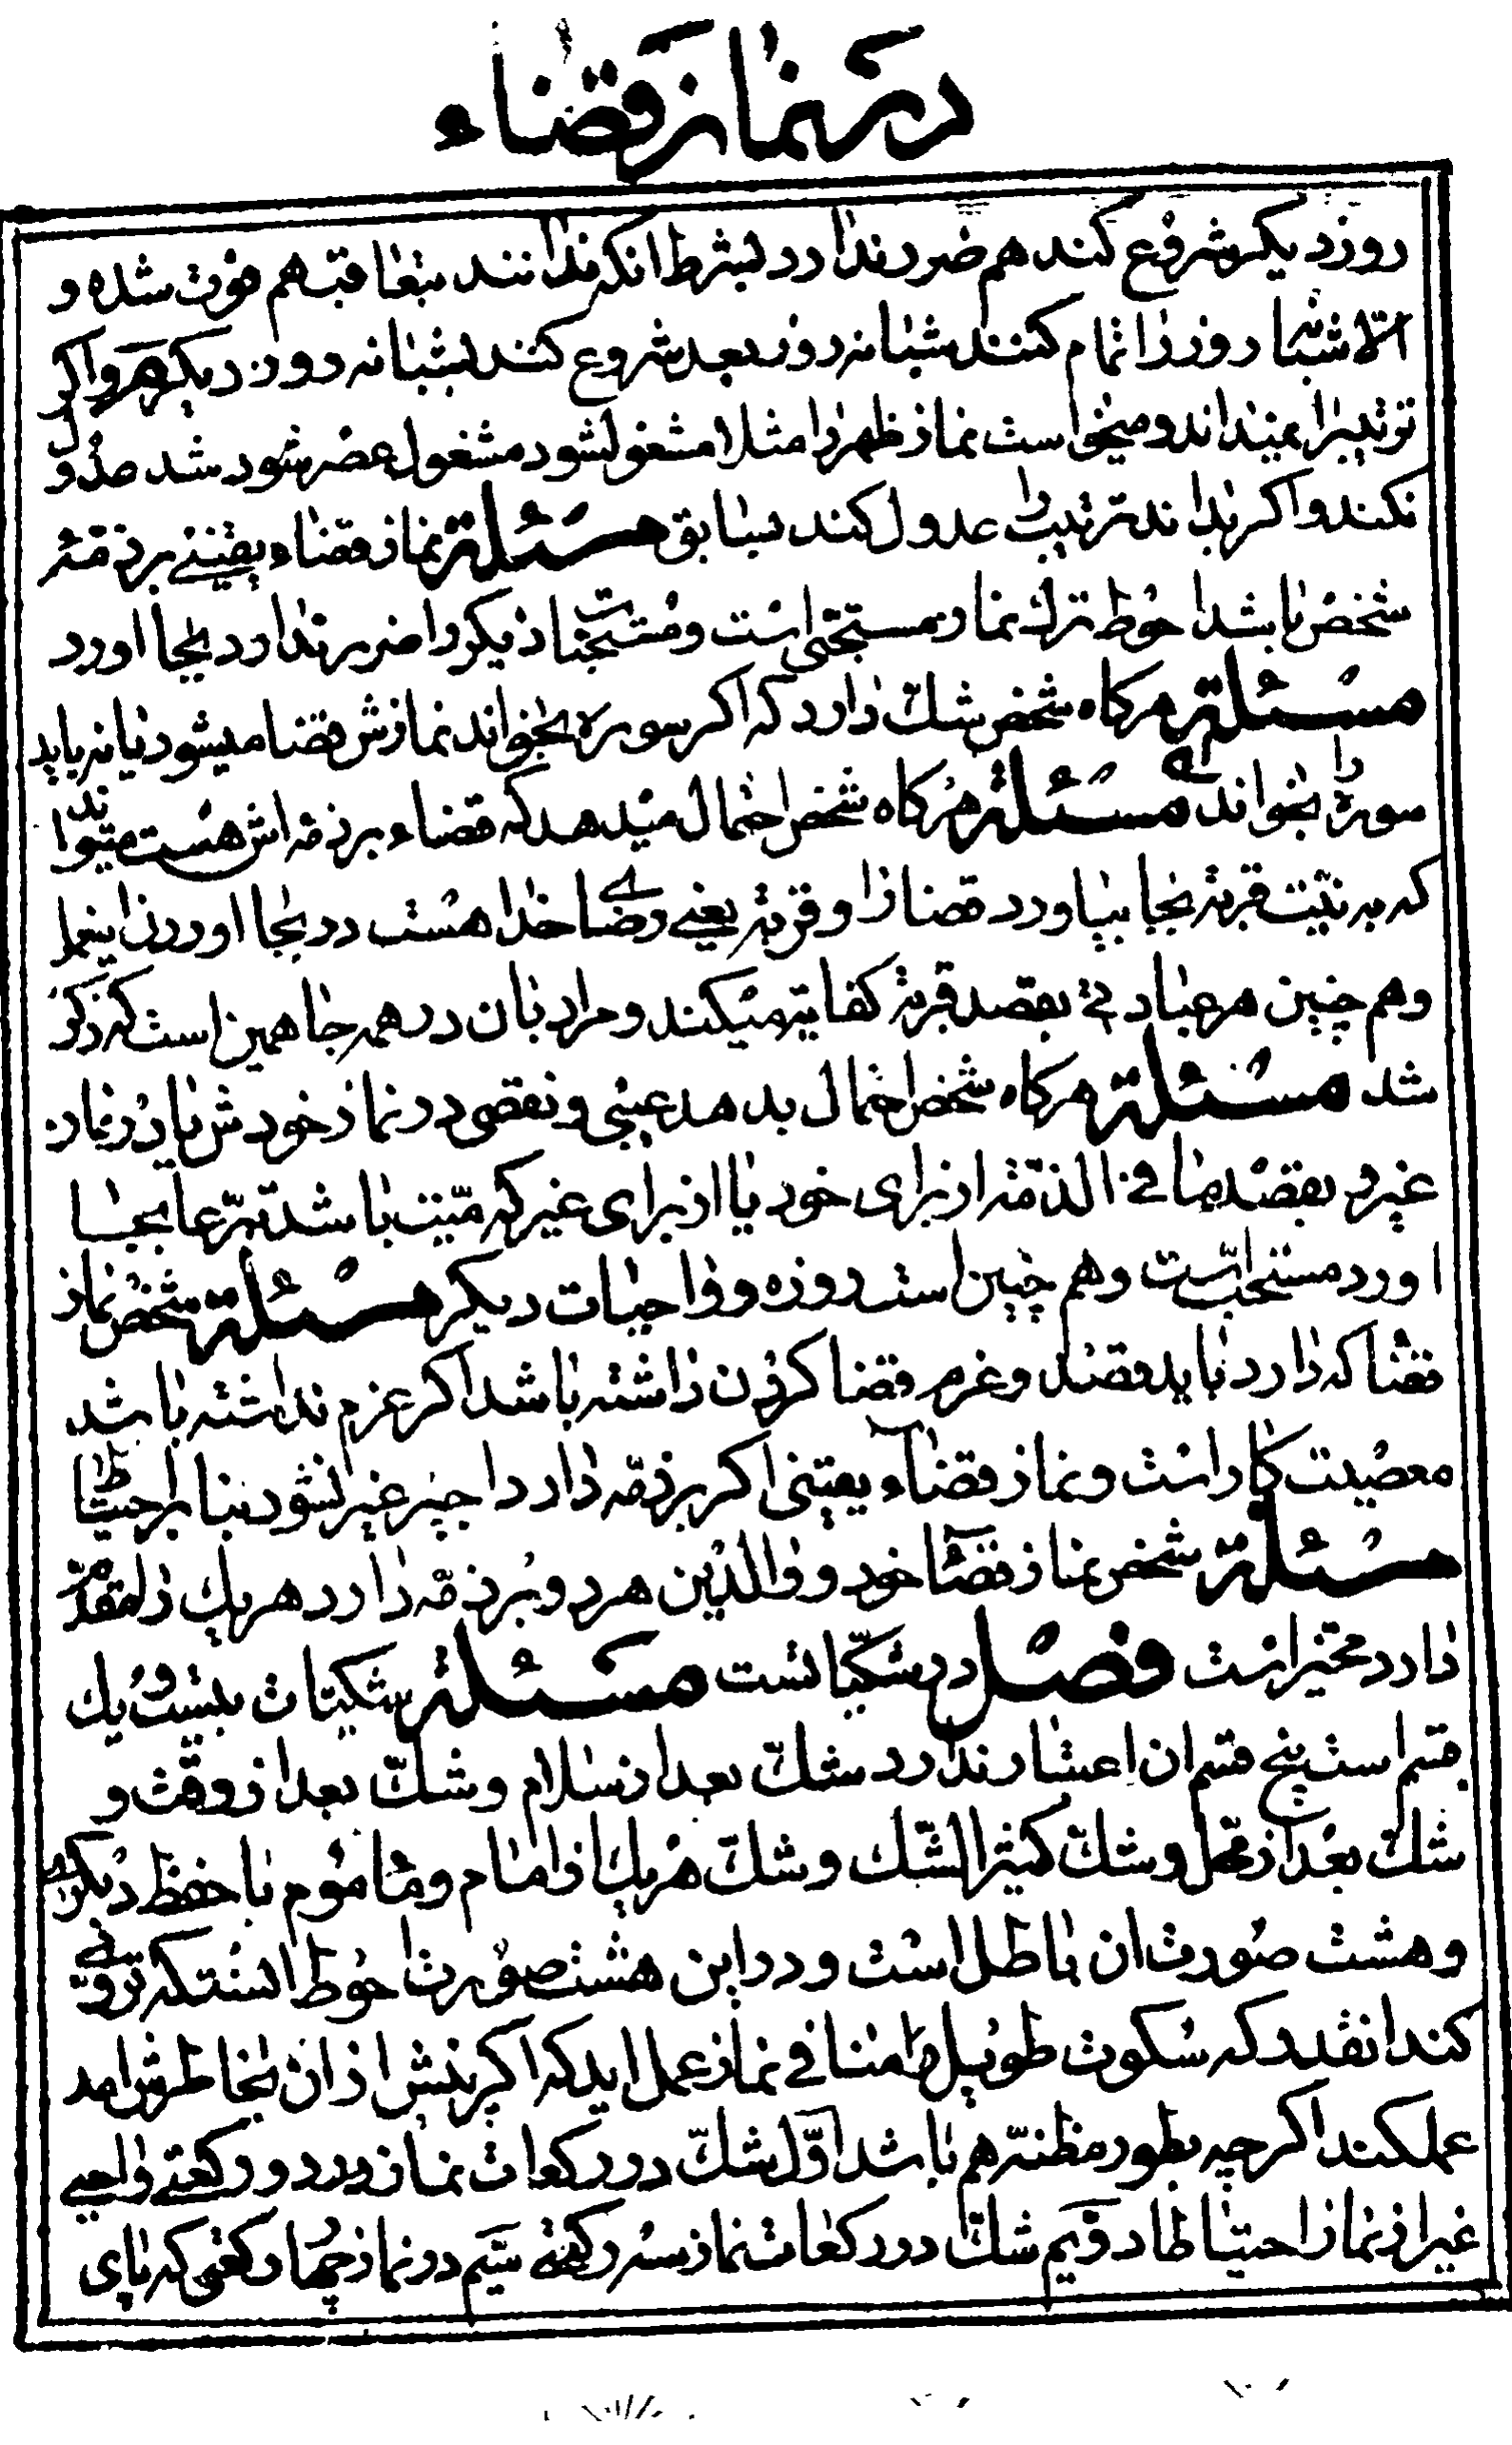 در نماز قضاء
روز دیکر شروع کند هم ضرر ندارد بشرط انکه ندانند متعاقب هم فوت شده و
الا شبانه روز را تمام کنند شبانه روز بعد شروع کنند بشبانه روز دیکر واکر
ترتیبرا میداند و میخواست نماز ظهر را مثلا مشغولشود مشغول عصر شود شد عدول
نکند و اکر بداند ترتیب را عدول کند بسابق مسئلة نماز قضاء یقینے بر ذمّه
شخص باشد احوط ترك نماز مستحبی است و مستحبات دیکر را ضرر ندارد بجا اورد
مسئلة هرکاه شخص شكّ دارد که اکر سوره بخواند نمازش قضا میشود یا نه باید
سوره را بخواند مسئلة هرکاه شخص احتمال میدهد که قضاء بر ذمه اش هست میتواند
که به نیّت قربة بجا بیاورد قضا را و قربة یعنے رضاے خدا هست در بجا اوردن اینها
و هم چنین هر عبادتے بقصد قربة کفایة میکند و مراد بان در همه جا همین است که ذکر
شد مسئلة هرکاه شخص احتمال بدهد عیبی و نقصی در نماز خودش یا در نماز
غیر و بقصد ما فے الذمّة از برای خود یا از برای غیر که میّت باشد تبرّعا بجا
اورد مستحبّ است و هم چنین است روزه و واجبات دیکر مسئلة شخص نماز
قضا که دارد باید قصد و عزم قضا کردن داشته باشد اکر عزم نداشته باشد
معصیت کار است و نماز قضاء یقینی اکر بر ذمّه دارد اجیر غیر نشود بنا بر احتیاط
مسئلة شخص نماز قضاء خود و والدین هر دو بر ذمّه دارد هر یك را مقدّم
دارد مخیر است فصل در شکیّاتست مسئلة شکیّات بیست و یك
قسم است پنج قسم ان اعتبار ندارد شكّ بعد از سلام و شكّ بعد از وقت و
شكّ بعد از محل و شكّ کثیر الشّك و شكّ هر یك از امام و ماموم با حفظ دیکری
و هشت صورت ان باطل است و در این هشت صورت احوط انستکه تروّی
کند انقدر که سکوت طویل یا منافے نماز عمل اید که اکر پیش از ان بخاطرش امد
عملکند اکرچه بطور مظنّه هم باشد اوّل شكّ در رکعات نماز دو رکعتے واجبے
غیر از نماز احتیاط دویّم شكّ در رکعات نماز سه رکعتے سیّم در نماز چهار رکعتی که پای